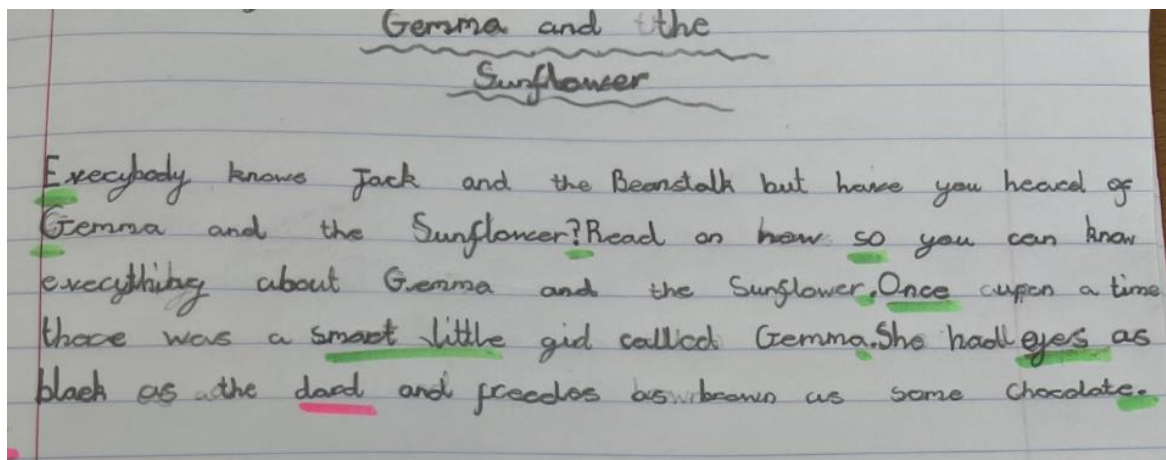 Gemma and the
Sunflower
Everybody knows Jack and the Beanstalk but have you heared of
Gemma and the Sunflower?Read on how so you can know
everything about Gemma and the Sunflower.Once aupon a time
thore was a smart little girl called Gemma.She had eyes as
black as the dard and freedos as brown as some chocolate.